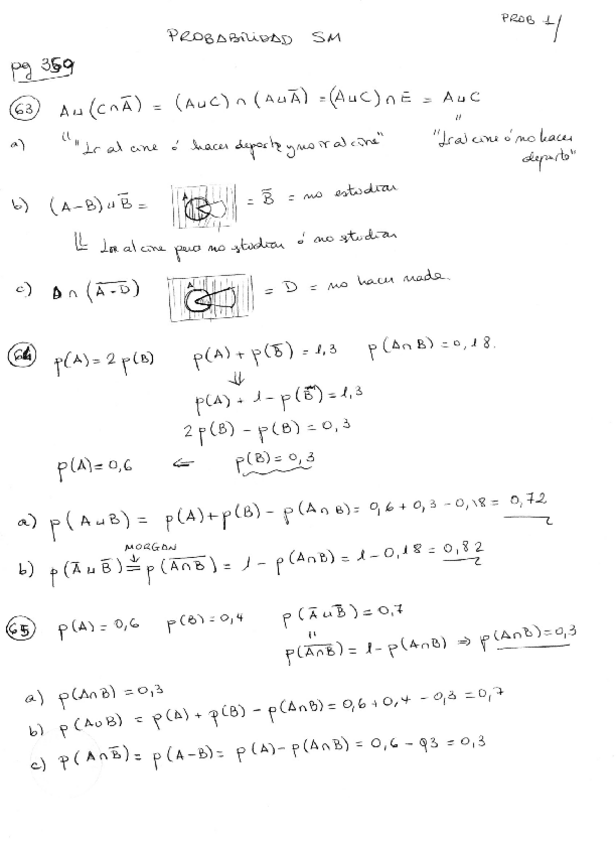 PROB 1/
PROBABILIDAD SM
pg 359
63 A∪(C∩Ā) = (A∪C)∩(A∪Ā) = (A∪C)∩E = A∪C
a) "Ir al cine ó hacer deporte y no ir al cine" "Ir al cine ó no hacer
deporte"
b) (A-B)∪B̄ = = B̄ = no estudiar
Ir al cine pero no estudiar ó no estudiar
c) D∩(A̅-̅D̅) = D = no hacer nada.
64 p(A)=2p(B) p(A)+p(B̄)=1,3 p(A∩B)=0,18.
⇓
p(A)+1-p(B)=1,3
2p(B)-p(B)=0,3
p(A)=0,6 ⇐ p(B)=0,3
a) p(A∪B) = p(A)+p(B)-p(A∩B)=0,6+0,3-0,18=0,72
MORGAN
b) p(Ā∪B̄) = p(A̅∩̅B̅) = 1-p(A∩B)=1-0,18=0,82
65 p(A)=0,6 p(B)=0,4 p(Ā∪B̄)=0,7
p(A̅∩̅B̅)=1-p(A∩B) ⇒ p(A∩B)=0,3
a) p(A∩B)=0,3
b) p(A∪B) = p(A)+p(B)-p(A∩B)=0,6+0,4-0,3=0,7
c) p(A∩B̄)=p(A-B)=p(A)-p(A∩B)=0,6-0,3=0,3